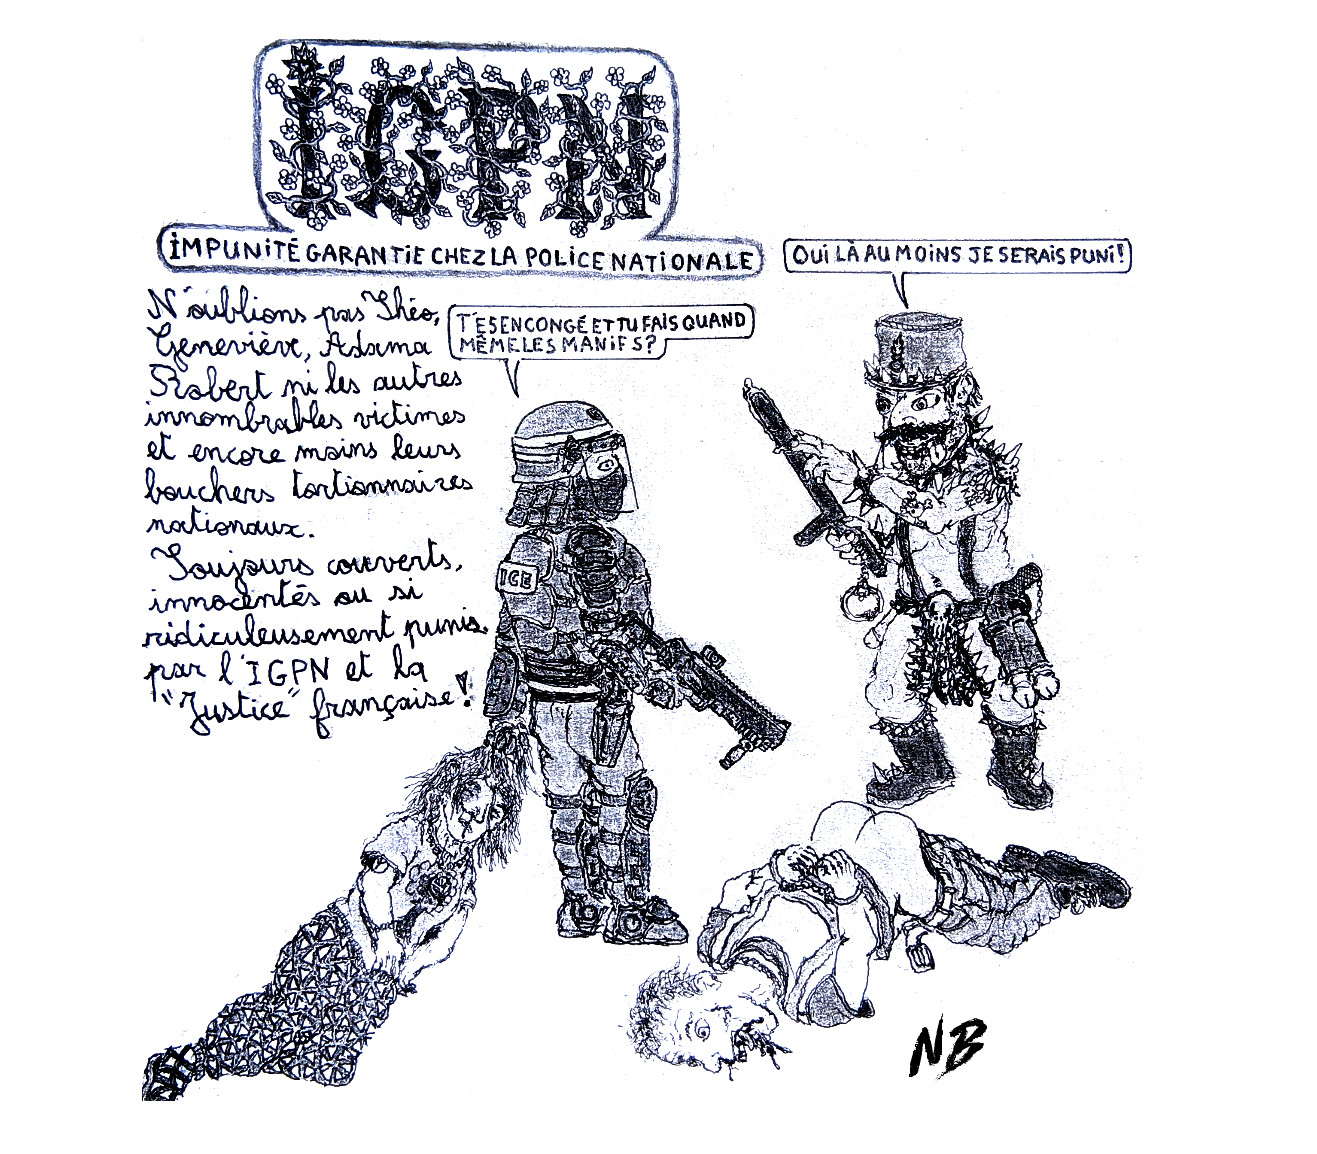 IGPN
IMPUNITÉ GARANTIE CHEZ LA POLICE NATIONALE
OUI LÀ AU MOINS JE SERAIS PUNI!
T'ES EN CONGÉ ET TU FAIS QUAND
MÊME LES MANIFS?
N'oublions pas Théo,
Geneviève, Adama
Robert ni les autres
innombrables victimes
et encore moins leurs
bouchers tortionnaires
nationaux.
Toujours couverts,
innocentés ou si
ridiculeusement punis
par l'IGPN et la
"Justice" française!
IGE
NB